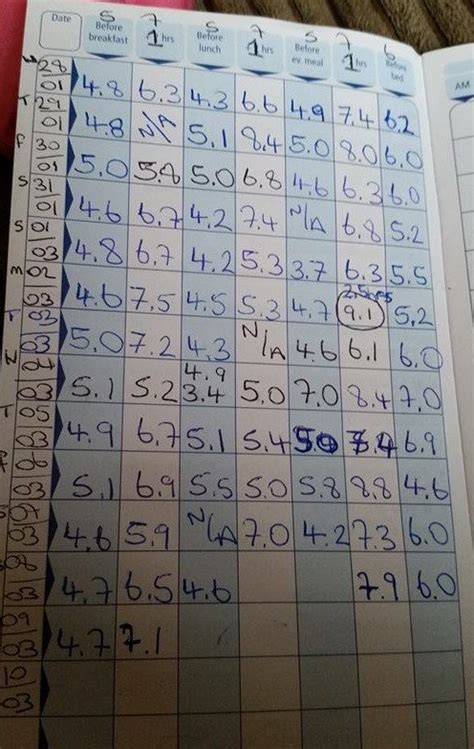 5 7 5 7 5 7 6
Date Before breakfast 1 hrs Before lunch 1 hrs Before ev. meal 1 hrs Before bed AM
28/01 4.8 6.3 4.3 6.6 4.9 7.4 6.2
T 29/01 4.8 N/A 5.1 8.4 5.0 8.0 6.0
F 30/01 5.0 5.8 5.0 6.8 4.6 6.3 6.0
S 31/01 4.6 6.7 4.2 7.4 N/A 6.8 5.2
S 01/03 4.8 6.7 4.2 5.3 3.7 6.3 5.5
M 02/03 4.6 7.5 4.5 5.3 4.7 9.1 5.2
T 03/03 5.0 7.2 4.3 N/A 4.6 6.1 6.0
4.9
03 5.1 5.2 3.4 5.0 7.0 8.4 7.0
T 05/03 4.9 6.7 5.1 5.4 5.0 7.4 6.9
06/03 5.1 6.9 5.5 5.0 5.8 8.8 4.6
07/03 4.6 5.9 N/A 7.0 4.2 7.3 6.0
08/03 4.7 6.5 4.6 7.9 6.0
09/03 4.7 7.1
10/03